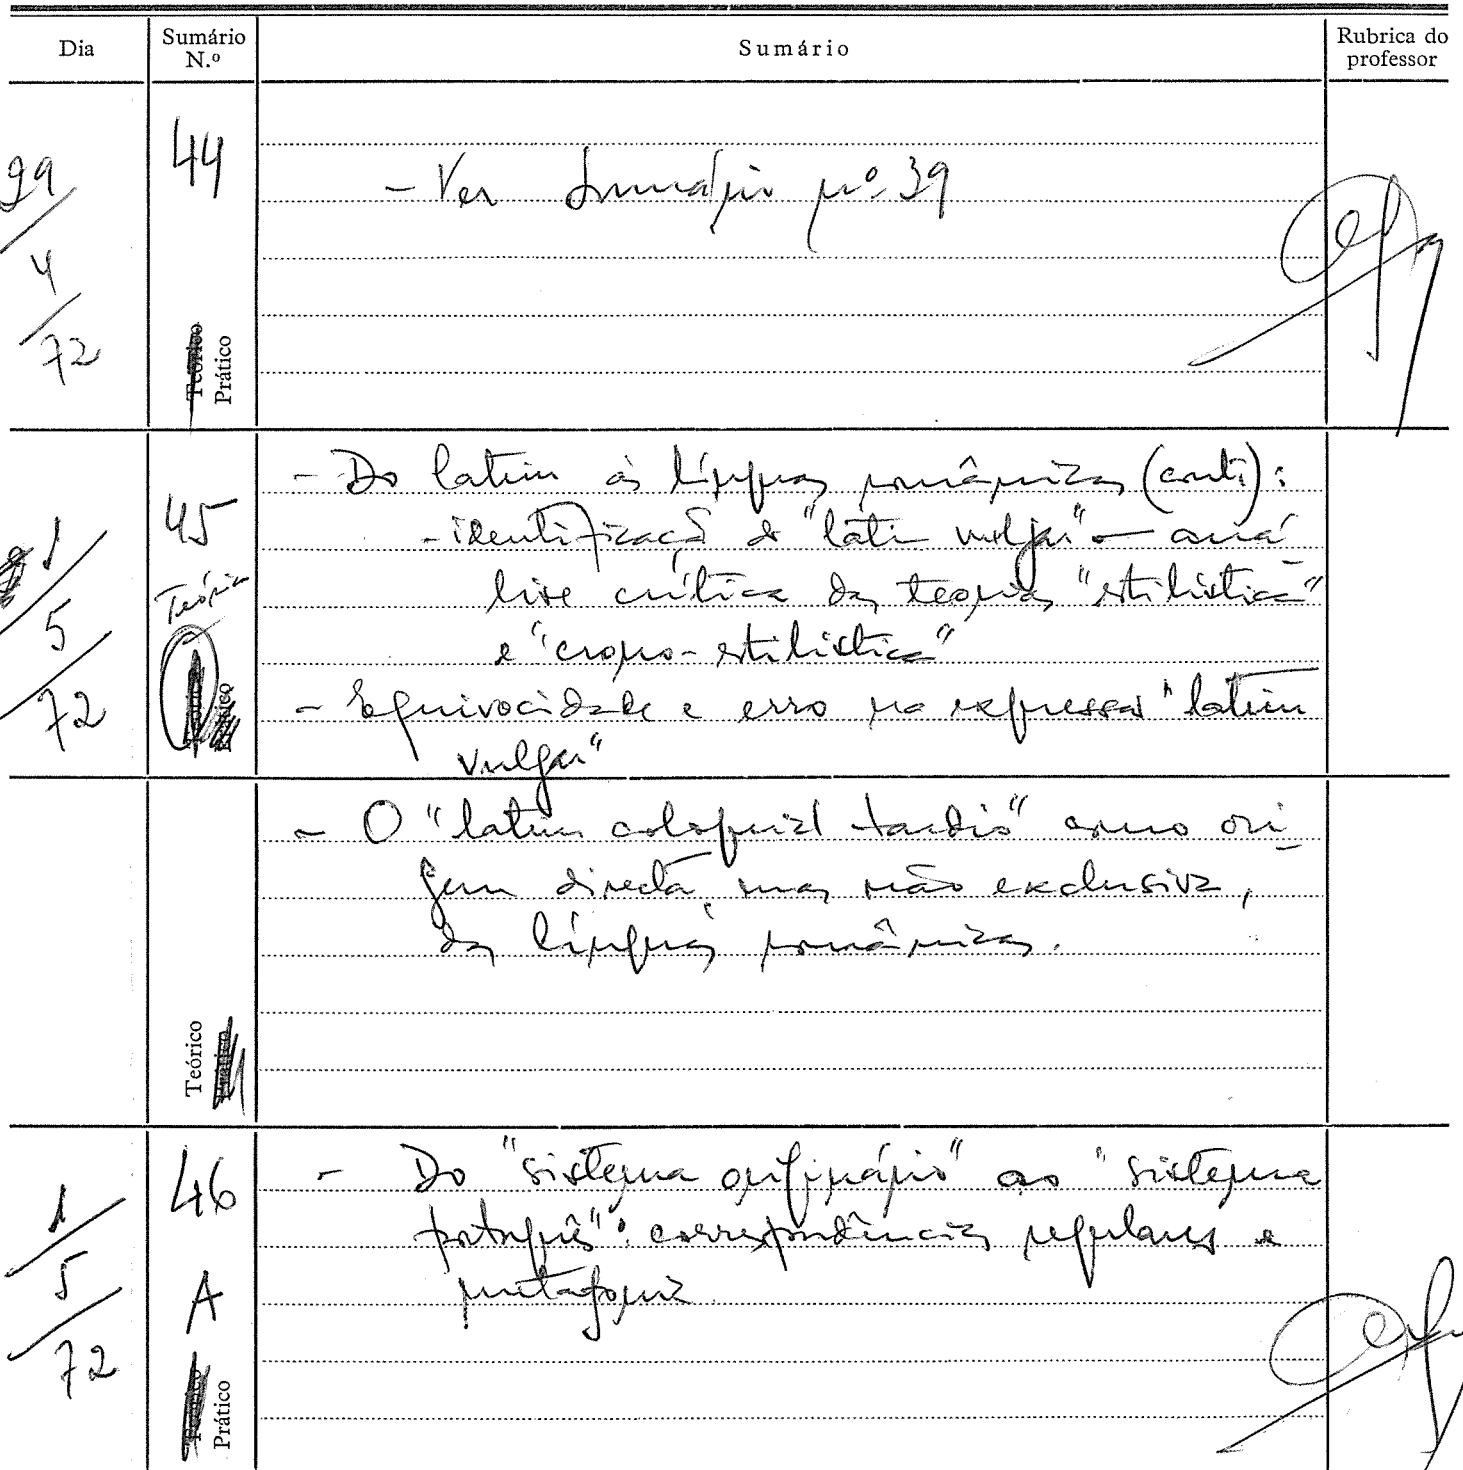 Dia
Sumário N.º
Sumário
Rubrica do professor
29/4/72
44
- Ver Sumário nº 39
Teórico
Prático
1/5/72
45
Teórico
- Do latim às línguas românicas (cont.):
- identificação do "latim vulgar" — aná
lise crítica das teorias "estilística"
e "crono-estilística"
- Equivocidade e erro na expressão "latim
vulgar"
- O "latim coloquial tardio" como ori
gem directa, mas não exclusiva,
das línguas românicas.
Teórico
1/5/72
46
A
- Do "sistema originário" ao "sistema
português": correspondências regulares e
metafonia
Prático